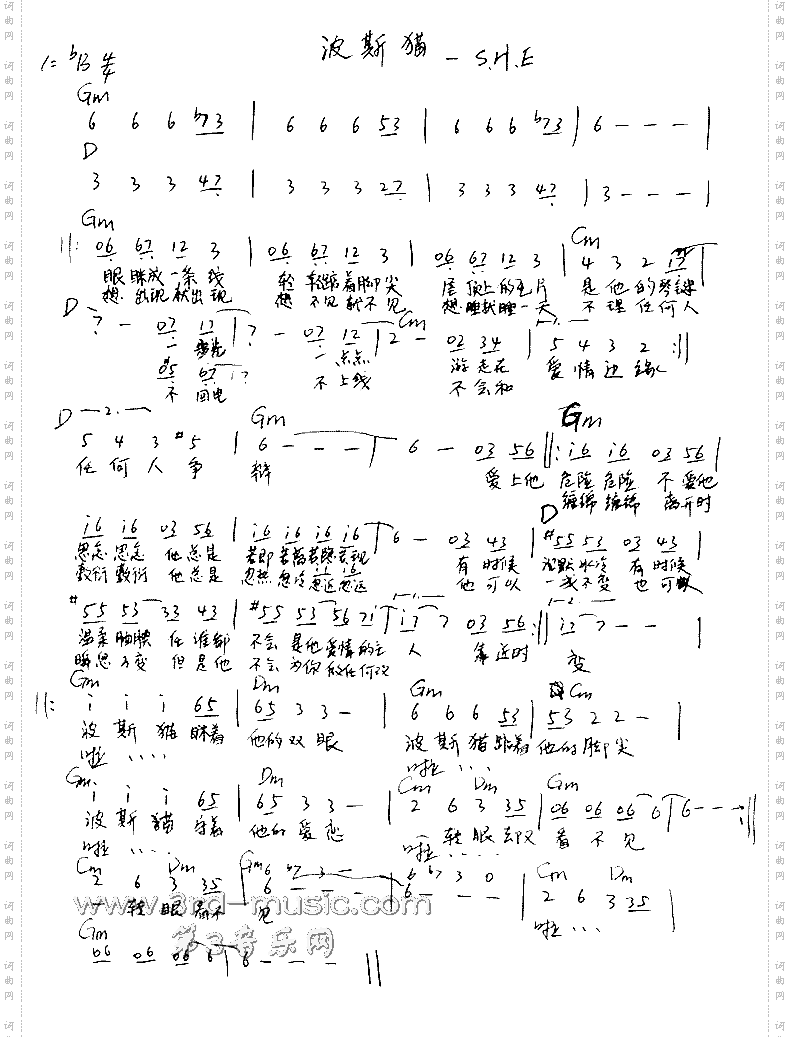 波斯猫 - S.H.E
1=ᵇB 4/4
Gm
6 6 6 ᵇ73 | 6 6 6 53 | 6 6 6 ᵇ73 | 6 - - - |
D
3 3 3 47 | 3 3 3 27 | 3 3 3 47 | 3 - - - |
Gm Cm
||: 06 67 12 3 | 06 67 12 3 | 06 67 12 3 | 4 3 2 17 |
眼眯成一条线 轻轻踮着脚尖 屋顶上的毛片 是他的琴键
想出现就出现 想不见就不见 想睡就睡一天 不理任何人
D Cm
7 - 07 12 | 7 - 07 12 | 2 - 02 34 | 5 4 3 2 :||
一 一点点 游走在 爱情边缘
05 67 12
不回电 不上线 不会和
D 2. Gm Gm
5 4 3 #5 | 6 - - - | 6 - 03 56 ||: i6 i6 03 56 |
任何人争 辩 爱上他 危险危险 不爱他
缠绵缠绵 离开时
D
i6 i6 03 56 | i6 i6 i6 i6 | 6 - 03 43 | #55 53 03 43 |
思念思念 他总是 若即若离若隐若现 有时候 沉默冰冷 有时候
敷衍敷衍 他总是 忽热忽冷忽近忽远 他可以 一成不变 也可以
#55 53 33 43 | #55 53 56 71 | 17 7 03 56 :|| 17 7 - - |
温柔腼腆 任谁都 不会是他爱情的主 人 靠近时 变
瞬息万变 但是他 不会为你做任何改
Gm Dm Gm Cm
||: i i i 65 | 65 3 3 - | 6 6 6 53 | 53 2 2 - |
波斯猫眯着 他的双眼 波斯猫踮着 他的脚尖
啦 · · · · 啦 · · ·
Gm Dm Cm Dm Gm
i i i 65 | 65 3 3 - | 2 6 3 35 | 06 06 06 6 | 6 - - - :||
波斯猫守着 他的爱恋 一转眼却又看不见
啦 · · · · 啦 · · · ·
Cm Dm Gm Cm Dm
2 6 3 35 | 6 - - - | 6 - - - | 2 6 3 35 |
6 ᵇ7 3 - 6 ᵇ7 3 0
一转眼看不见 啦 · · ·
www.3rd-music.com
第3音乐网
Gm
06 06 06 6 | 6 - - - ||
词曲网